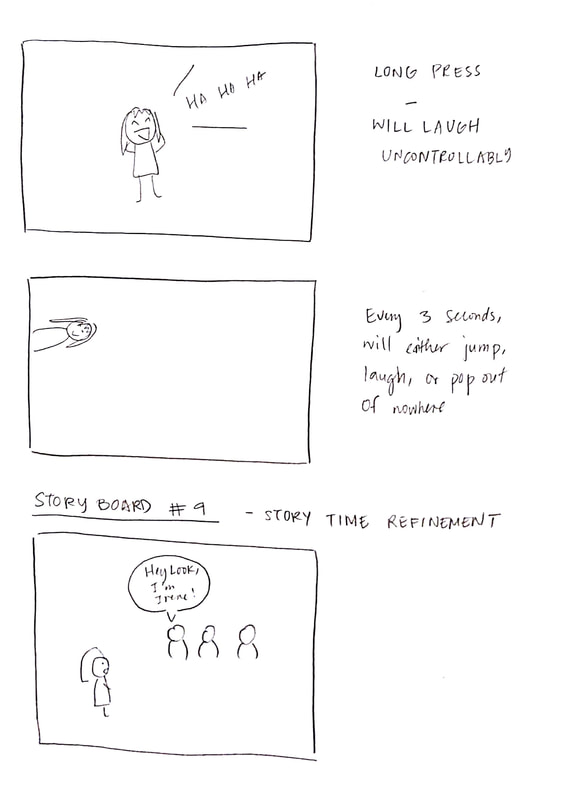 HA HA HA
LONG PRESS
–
WILL LAUGH
UNCONTROLLABLY
Every 3 seconds,
will either jump,
laugh, or pop out
of nowhere
STORY BOARD # 9 - STORY TIME REFINEMENT
Hey Look,
I'm
Irene!